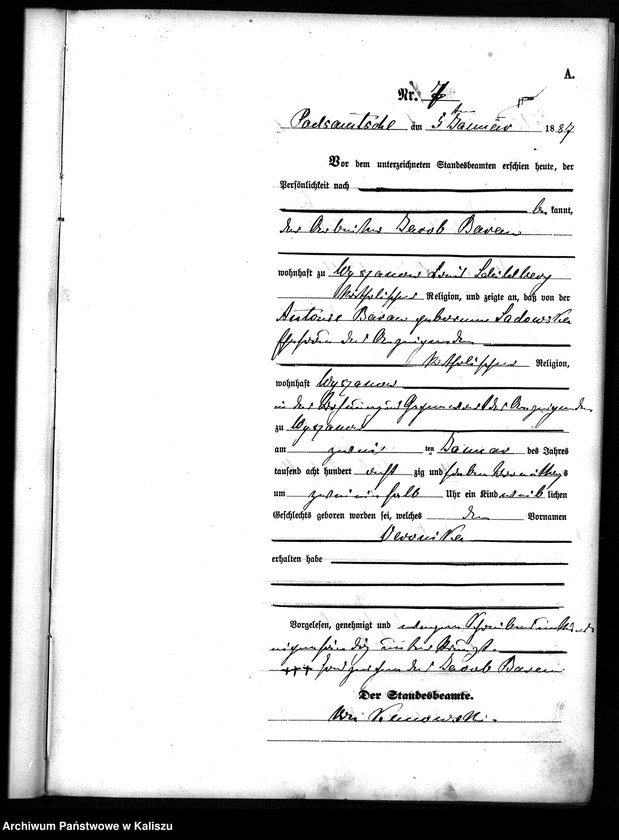 A.
Nr. 7
Podsamtsche am 5 Januar 1887
Vor dem unterzeichneten Standesbeamten erschien heute, der
Persönlichkeit nach
be kannt,
der Arbeiter Jacob Baran
wohnhaft zu Wyszanow Kreis Schildberg
katholischer Religion, und zeigte an, daß von der
Antonie Baran geborenen Sadowska
Ehefrau des Anzeigenden
katholischer Religion,
wohnhaft Wyszanow
in der Wohnung und Gegenwart des Anzeigenden
zu Wyszanow
am zweiten Januar des Jahres
tausend acht hundert acht zig und sieben Vormittags
um Uhr ein Kind weib lichen
Geschlechts geboren worden sei, welches den Vornamen
Veronika
erhalten habe
Vorgelesen, genehmigt und wegen
+++ Handzeichen des Jacob Baran
Der Standesbeamte.
Archiwum Państwowe w Kaliszu